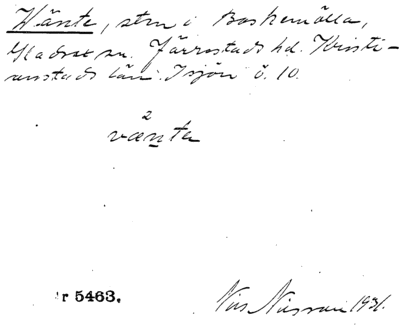 Wänte, stn i Baskemölla,
Gladsax sn. Järrestads hd. Kristi-
anstads län. Tsjön ö. 10.
2
vænta
r 5463.
Nils Nilsson 1931.